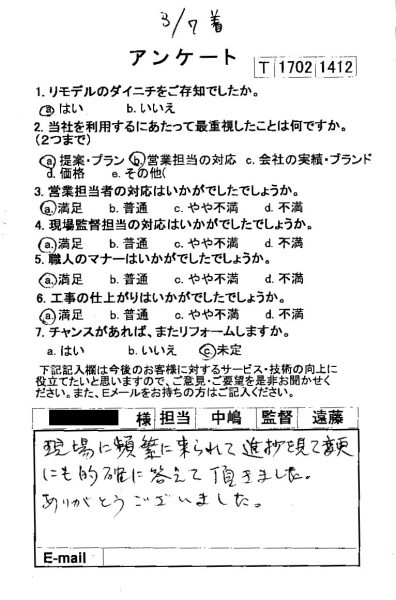 3/7 着
アンケート
T 1702 1412
1. リモデルのダイニチをご存知でしたか。
a. はい b. いいえ
2. 当社を利用するにあたって最重視したことは何ですか。
(2つまで)
a. 提案・プラン b. 営業担当の対応 c. 会社の実績・ブランド
d. 価格 e. その他(
3. 営業担当者の対応はいかがでしたでしょうか。
a. 満足 b. 普通 c. やや不満 d. 不満
4. 現場監督担当の対応はいかがでしたでしょうか。
a. 満足 b. 普通 c. やや不満 d. 不満
5. 職人のマナーはいかがでしたでしょうか。
a. 満足 b. 普通 c. やや不満 d. 不満
6. 工事の仕上がりはいかがでしたでしょうか。
a. 満足 b. 普通 c. やや不満 d. 不満
7. チャンスがあれば、またリフォームしますか。
a. はい b. いいえ c. 未定
下記記入欄は今後のお客様に対するサービス・技術の向上に
役立てたいと思いますので、ご意見・ご要望を是非お聞かせく
ださい。また、Eメールをお持ちの方はご記入ください。
様 担当 中嶋 監督 遠藤
現場に頻繁に来られて進捗を見て変更
にも的確に答えて頂きました。
ありがとうございました。
E-mail